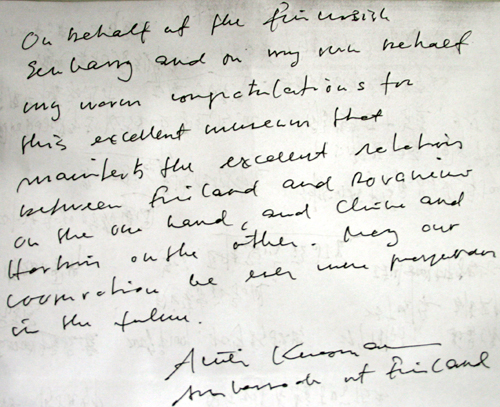 On behalf of the Finnish
Embassy and on my own behalf
my warm congratulations for
this excellent museum that
manifests the excellent relations
between Finland and Rovaniemi
on the one hand, and China and
Harbin on the other. May our
cooperation be ever more prosperous
in the future.
Antti Kuosmanen
Ambassador of Finland